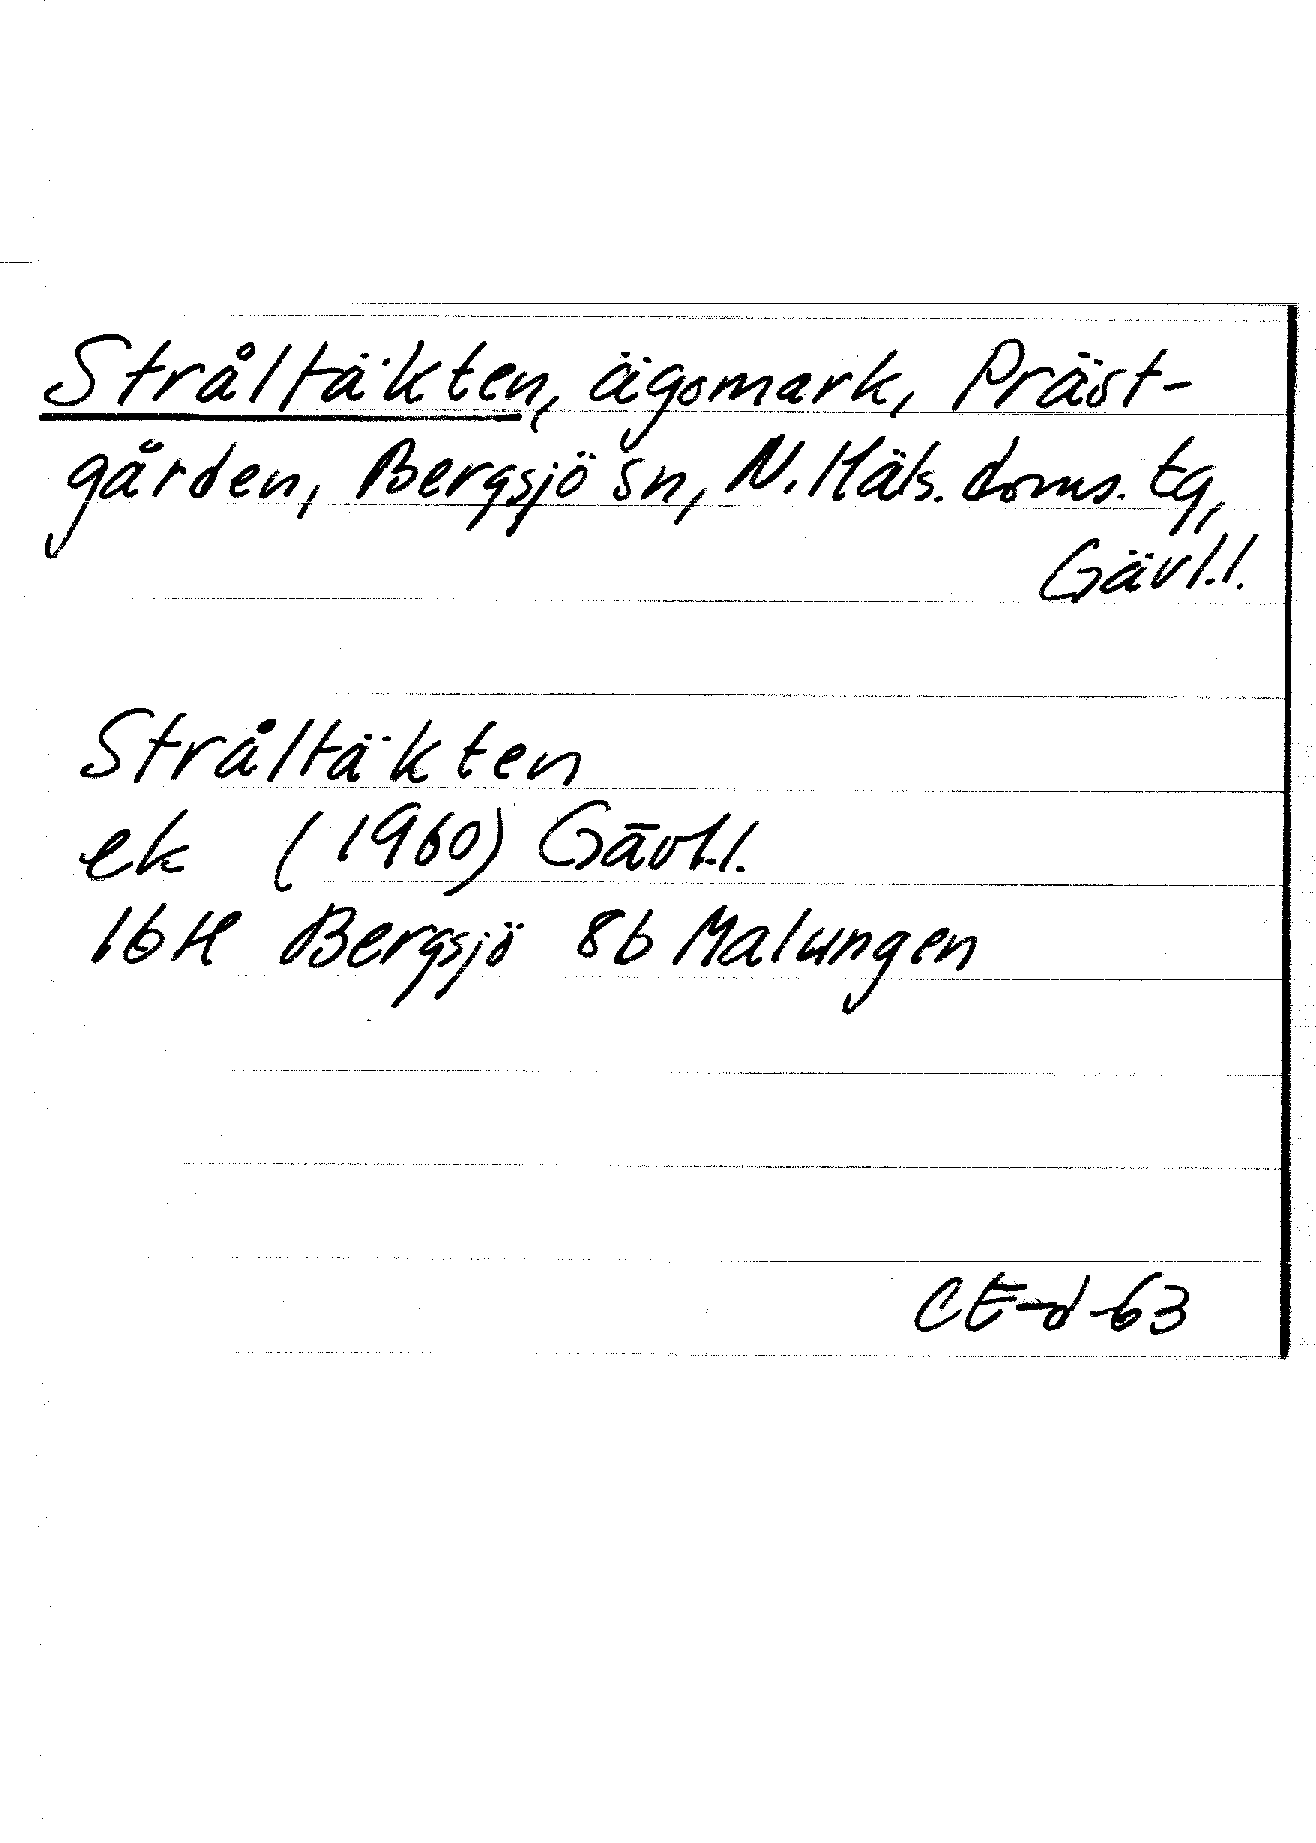 Stråltäkten, ägomark, Präst-
gården, Bergsjö sn, N. Häls. doms. tg,
Gävl.l.
Stråltäkten
ek (1960) Gävl.l.
16H Bergsjö 8b Malungen
CE-d-63